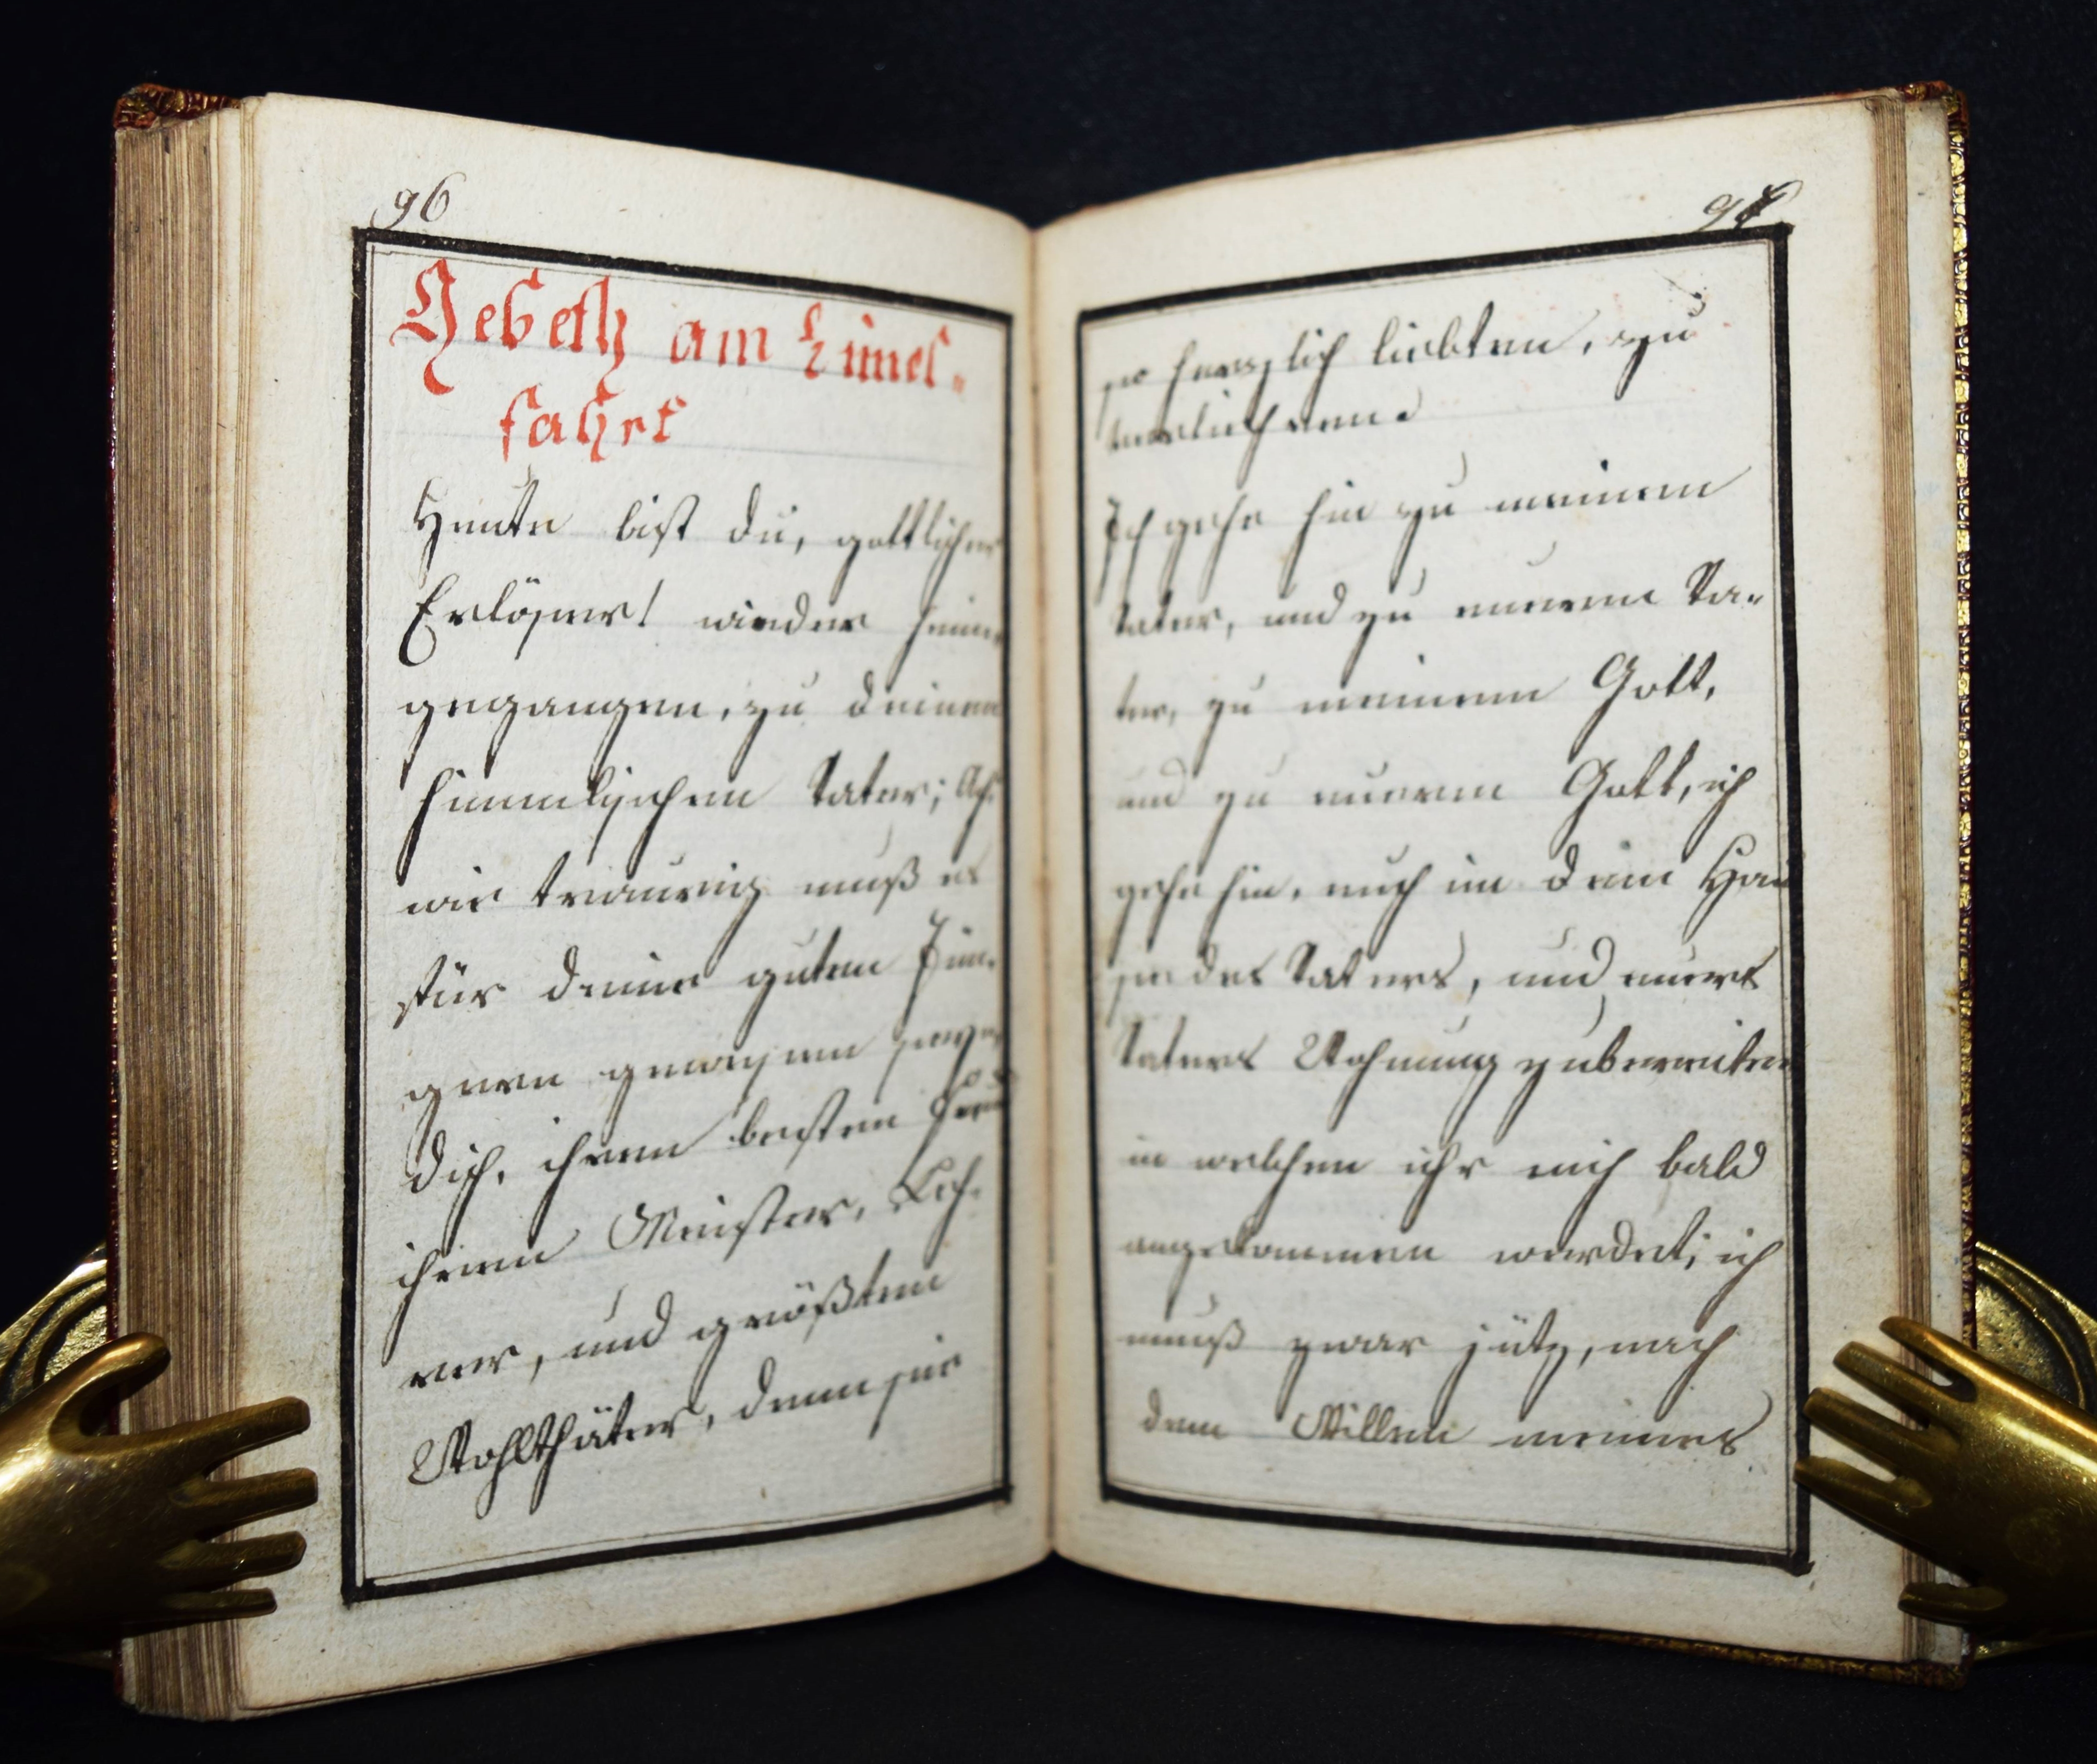 96
Gebeth am Himel-
fahrt
Heute bist du, gottlicher
Erlöser! wieder heim
gegangen, zu deinen
himmlischen Vater; Ach
wie traurig muß es
für deine guten Jün-
geren gewesen seyn
dich, ihren besten Freu
ihren Meister, Leh-
rer, und größten
Wohlthäter, denn sie
97
so herzlich liebten, zu
verliehren.
Ich gehe hin zu meinem
Vater, und zu eueren Va-
ter, zu meinem Gott,
und zu eueren Gott, ich
gehe hin, euch im dem Hau
se des Vaters, und euers
Vaters Wohnung zubereiten
in welchen ihr mich bald
angekommen werdet; ich
muß zwar jütz, nach
dem Willen meines